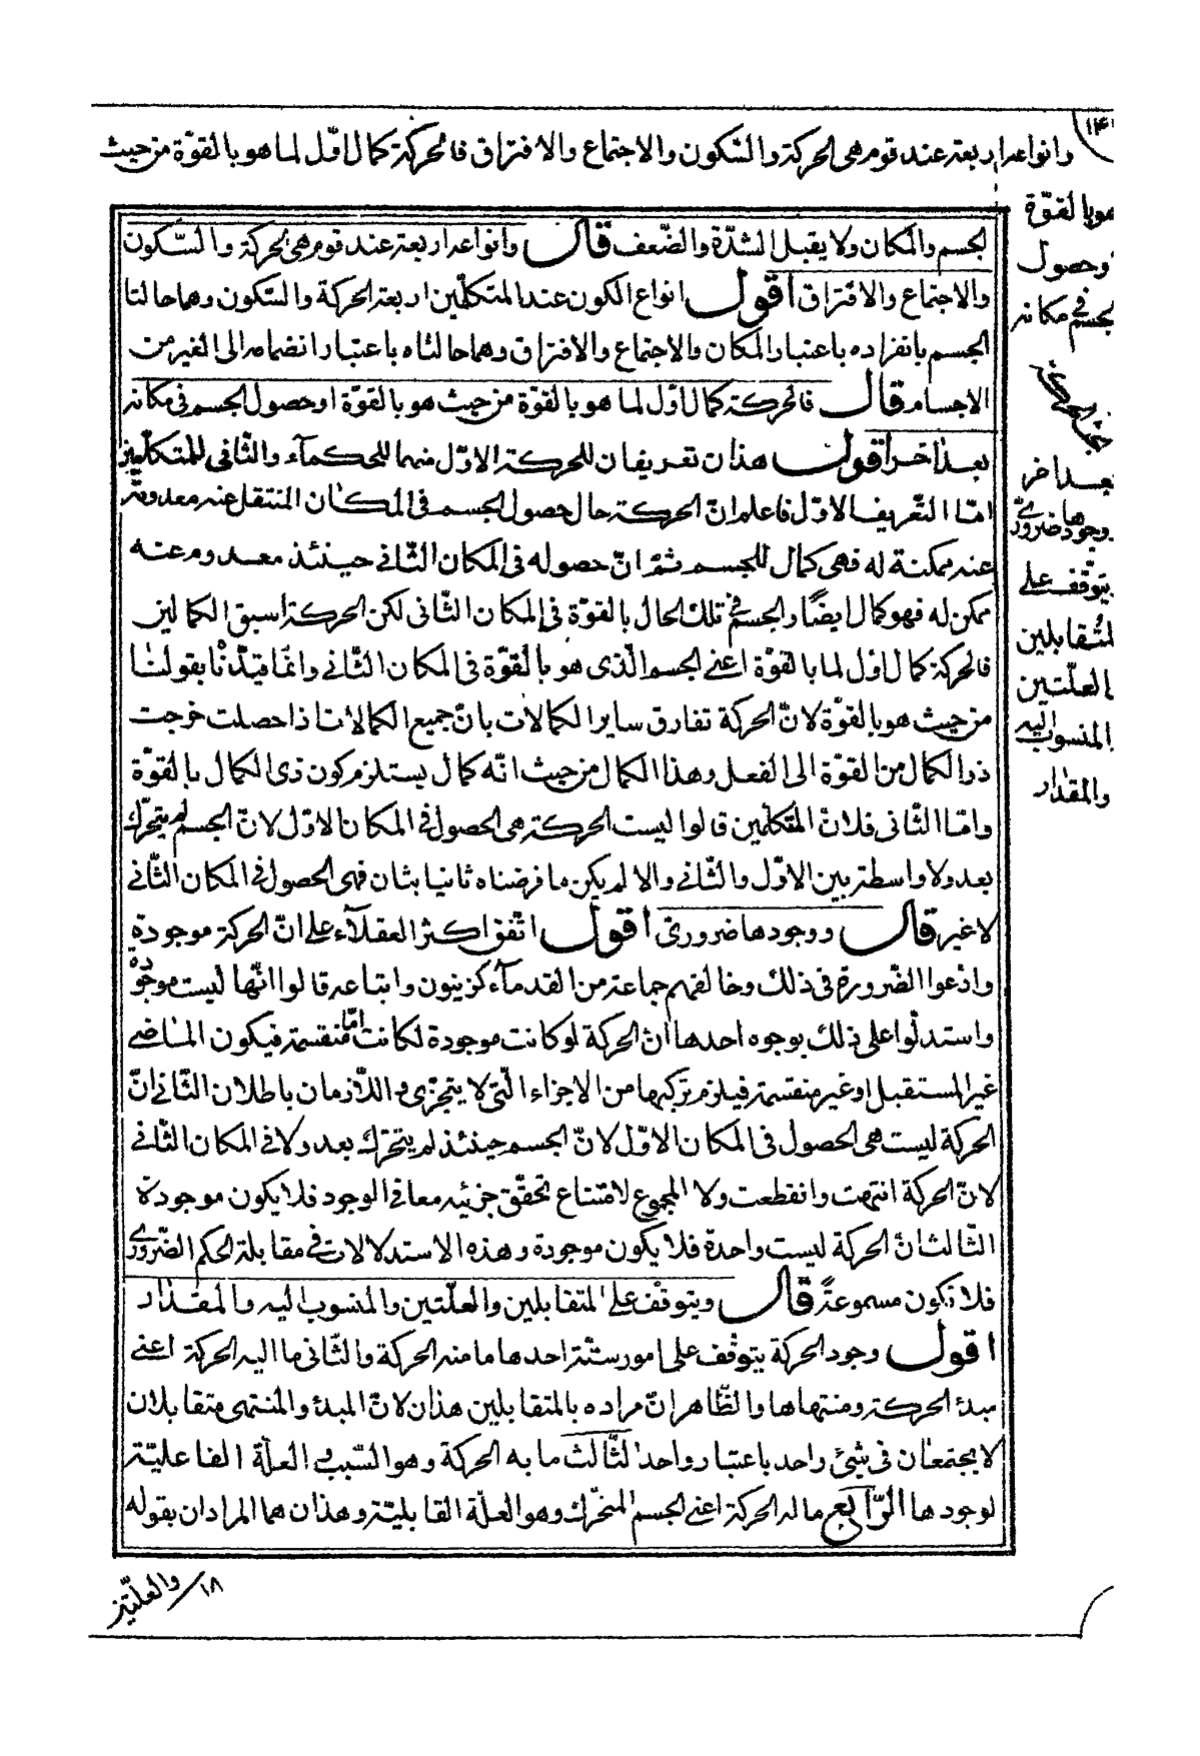 ١٤
وانواعه اربعة عند قوم هى الحركة والسّكون والاجتماع والافتراق فالحركة كمال اوّل لما هو بالقوّة من حيث
هو بالقوّة
او حصول
الجسم فى مكانه
بعد اخر
وجودها ضرورىّ
يتوقّف على
المتقابلين
والعلّتين
والمنسوب اليه
والمقدار
الجسم والمكان ولا يقبل الشدّة والضّعف قال وانواعه اربعة عند قوم هى الحركة والسّكون
والاجتماع والافتراق اقول انواع الكون عند المتكلّمين اربعة الحركة والسّكون وهما حالتا
الجسم بانفراده باعتبار المكان والاجتماع والافتراق وهما حالتاه باعتبار انضمامه الى الغير من
الاجسام قال فالحركة كمال اوّل لما هو بالقوّة من حيث هو بالقوّة او حصول الجسم فى مكانه
بعد اخر اقول هذان تعريفان للحركة الاوّل منهما للحكمآء والثّانى للمتكلّمين
امّا التّعريف الاوّل فاعلم انّ الحركة حال حصول الجسم فى المكان المنتقل عنه معدومة
عنه ممكنة له فهى كمال للجسم ثمّ انّ حصوله فى المكان الثّانى حينئذ معدوم عنه
ممكن له فهو كمال ايضًا والجسم فى تلك الحال بالقوّة فى المكان الثّانى لكن الحركة اسبق الكمالين
فالحركة كمال اوّل لما بالقوّة اعنى الجسم الّذى هو بالقوّة فى المكان الثّانى وانّما قيّدنا بقولنا
من حيث هو بالقوّة لانّ الحركة تفارق ساير الكمالات بانّ جميع الكمالات اذا حصلت خرجت
ذو الكمال من القوّة الى الفعل وهذا الكمال من حيث انّه كمال يستلزم كون ذى الكمال بالقوّة
وامّا الثّانى فلانّ المتكلّمين قالوا ليست الحركة هى الحصول فى المكان الاوّل لانّ الجسم لم يتحرّك
بعد ولا واسطة بين الاوّل والثّانى والا لم يكن ما فرضناه ثانيا بثان فهى الحصول فى المكان الثّانى
لا غير قال ووجودها ضرورىّ اقول اتّفق اكثر العقلآء على انّ الحركة موجودة
وادّعوا الضّرورة فى ذلك وخالفهم جماعة من القدمآء كزينون واتباعه قالوا انّها ليست موجودة
واستدلّوا على ذلك بوجوه احدها انّ الحركة لو كانت موجودة لكانت امّا منقسمة فيكون الماضى
غير المستقبل او غير منقسمة فيلزم تركّبها من الاجزاء الّتى لا يتجزى واللّازمان باطلان الثّانى انّ
الحركة ليست هى الحصول فى المكان الاوّل لانّ الجسم حينئذ لم يتحرّك بعد ولا فى المكان الثّانى
لانّ الحركة انتهت وانقطعت ولا المجموع لامتناع تحقّق جزئيه معا فى الوجود فلا يكون موجودة
الثّالث انّ الحركة ليست واحدة فلا يكون موجودة وهذه الاستدلالات فى مقابلة الحكم الضّرورىّ
فلا تكون مسموعةً قال ويتوقّف على المتقابلين والعلّتين والمنسوب اليه والمقدار
اقول وجود الحركة يتوقّف على امور ستّة احدها ما منه الحركة والثّانى ما اليه الحركة اعنى
مبدأ الحركة ومنتهاها والظّاهر انّ مراده بالمتقابلين هذان لانّ المبدأ والمنتهى متقابلان
لا يجتمعان فى شئ واحد باعتبار واحد الثّالث ما به الحركة وهو السّبب والعلّة الفاعليّة
لوجودها الرّابع ما له الحركة اعنى الجسم المتحرّك وهو العلّة القابليّة وهذان هما المرادان بقوله
والعلّتين
١٨